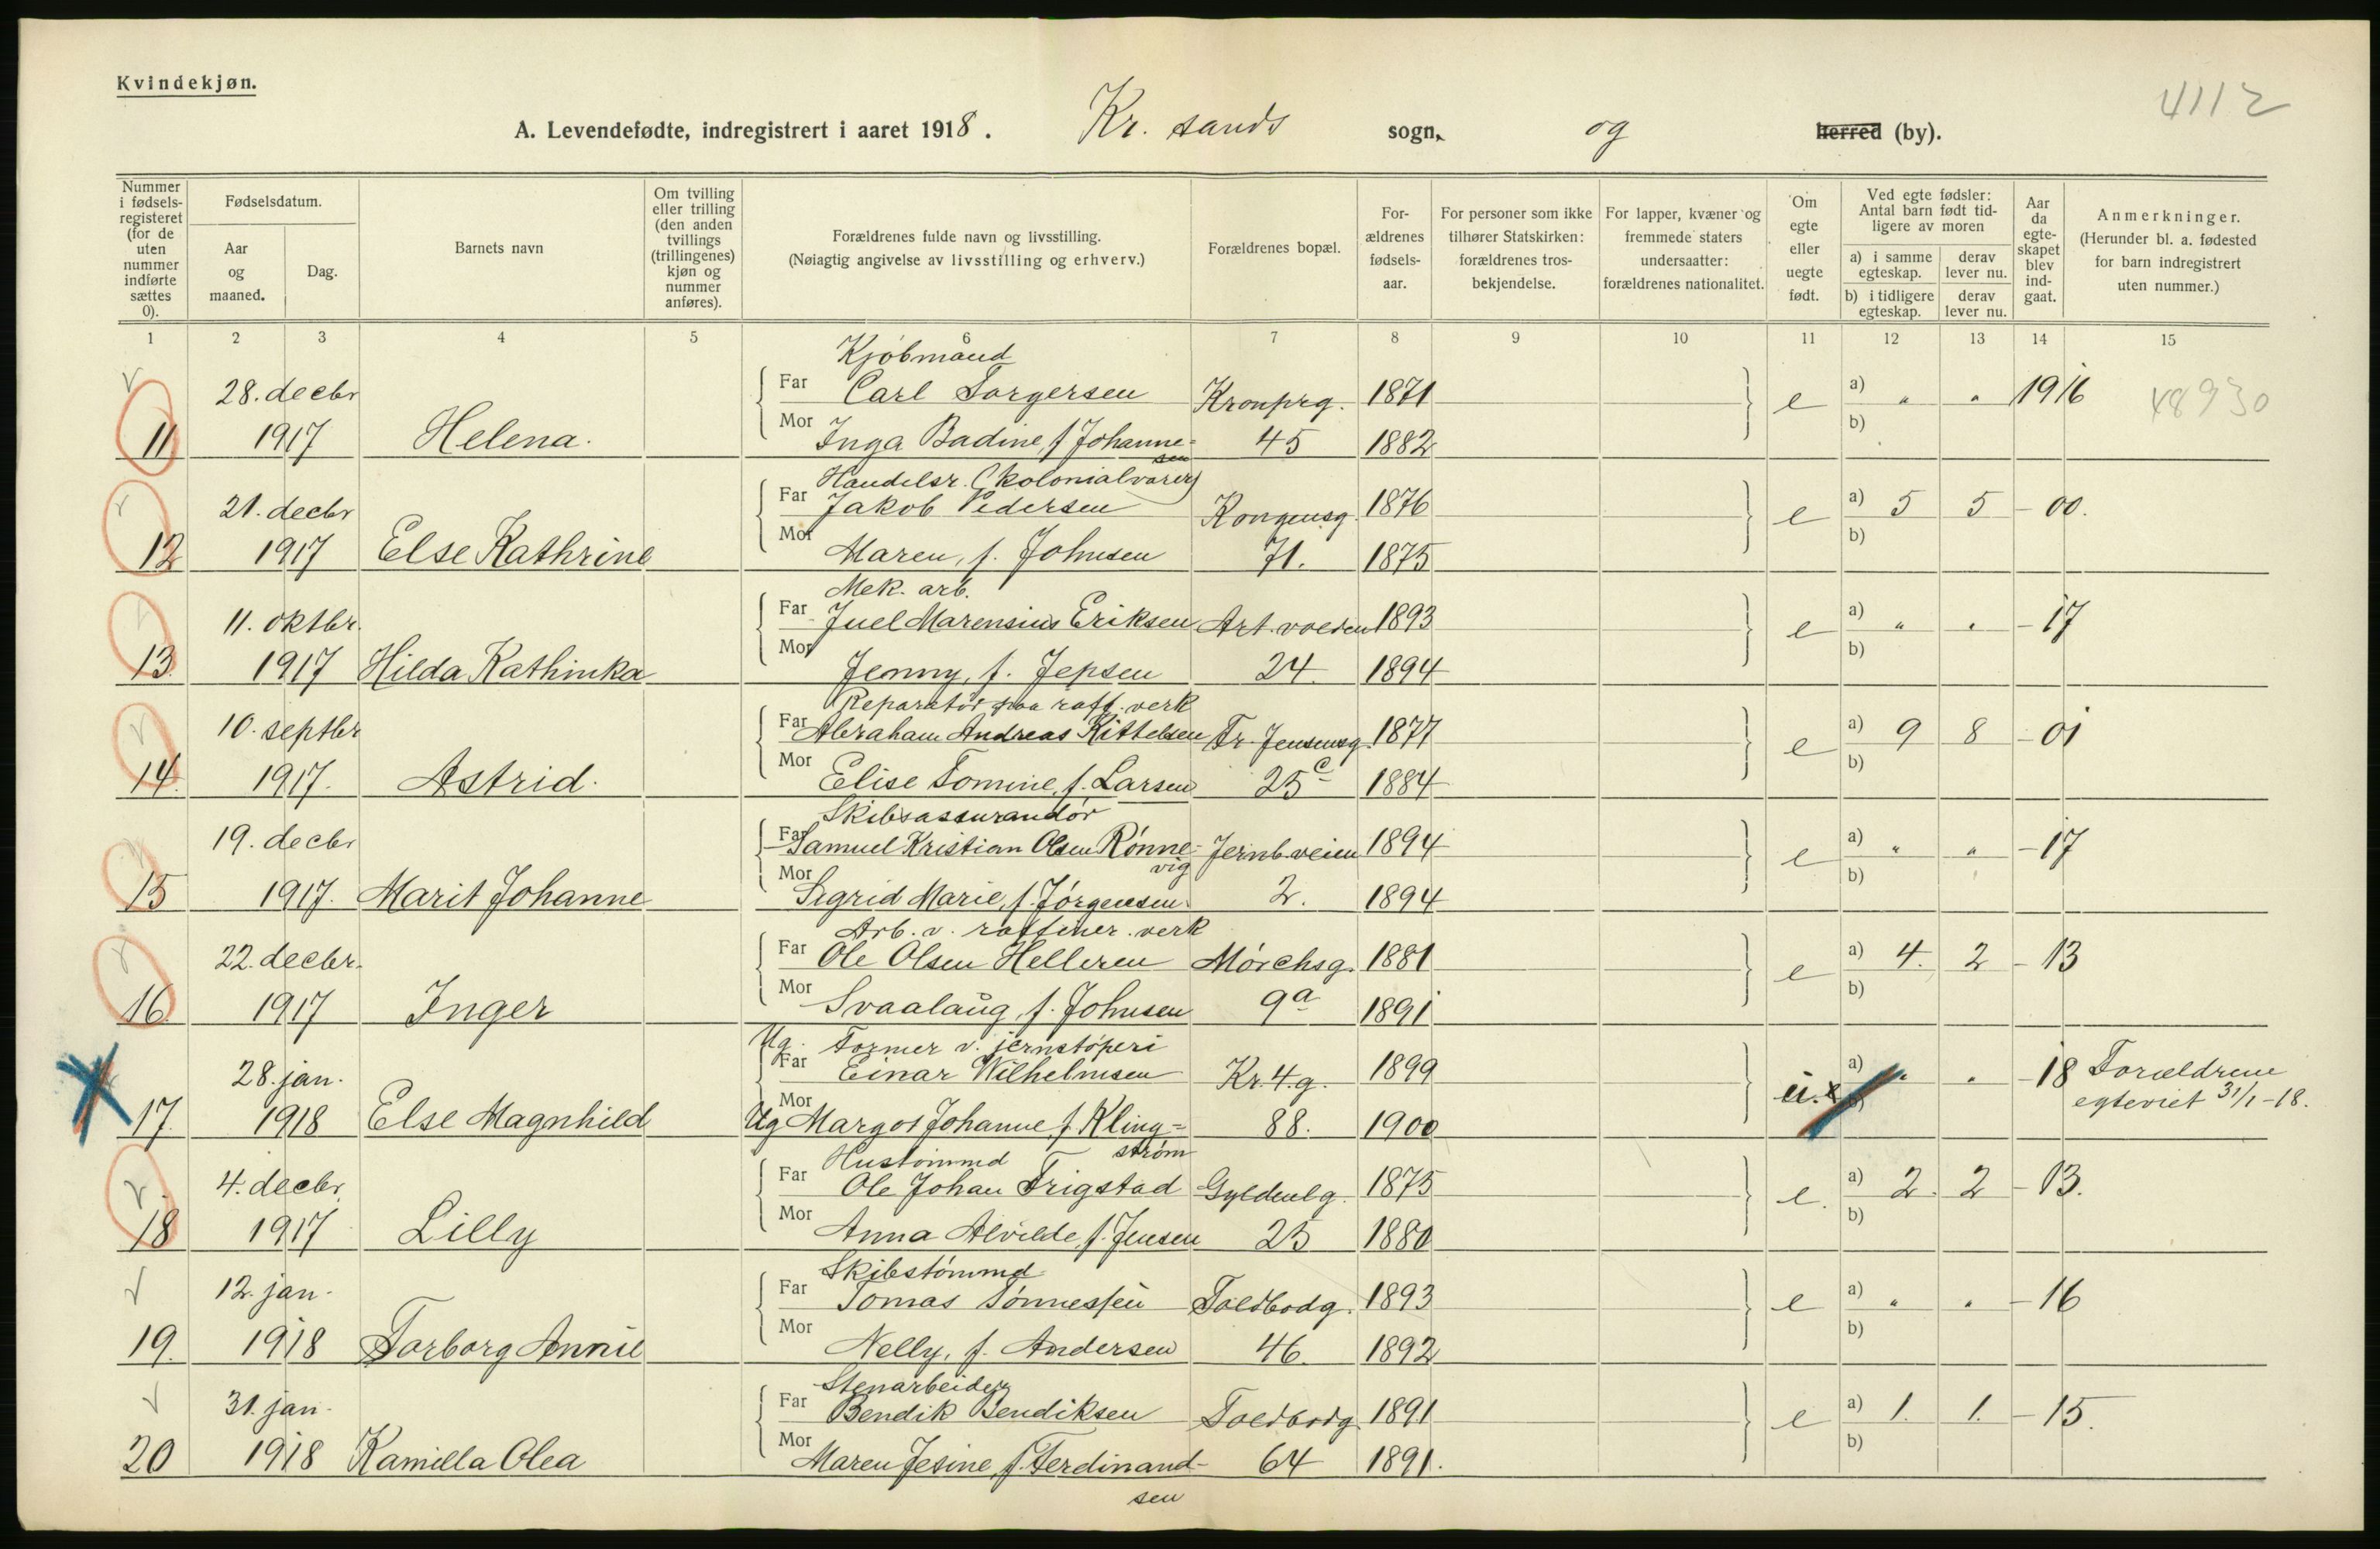 Kvindekjøn.
4112
A. Levendefødte, indregistrert i aaret 1918. Kr. sands sogn, og herred (by).
Nummer i fødsels-registeret (for de uten nummer indførte sættes 0).
Fødselsdatum.
Aar og maaned.
Dag.
Barnets navn
Om tvilling eller trilling (den anden tvillings (trillingenes) kjøn og nummer anføres).
Forældrenes fulde navn og livsstilling. (Nøiagtig angivelse av livsstilling og erhverv.)
Forældrenes bopæl.
For-ældrenes fødsels-aar.
For personer som ikke tilhører Statskirken: forældrenes tros-bekjendelse.
For lapper, kvæner og fremmede staters undersaatter: forældrenes nationalitet.
Om egte eller uegte født.
Ved egte fødsler: Antal barn født tid-ligere av moren
a) i samme egteskap. derav lever nu.
b) i tidligere egteskap. derav lever nu.
Aar da egte-skapet blev ind-gaat.
Anmerkninger. (Herunder bl. a. fødested for barn indregistrert uten nummer.)
1 2 3 4 5 6 7 8 9 10 11 12 13 14 15
Kjøbmand
28. decbr Far Carl Torgersen Kronprg. 1871 e a) " " 1916 48930
11 1917 Helena. Mor Inga Badine, f Johanne= 45 1882 b)
sen
Handelsr. (kolonialvarer)
21. decbr Far Jakob Pedersen Kongensg. 1876 e a) 5 5 - 00.
12 1917 Else Kathrine Mor Maren, f. Johnsen 71. 1875 b)
Mek. arb.
11. oktbr. Far Juel Marensius Eriksen Art. volden 1893 e a) " " - 17
13. 1917 Hilda Kathinka Mor Jenny, f. Jepsen 24. 1894 b)
Reparatør paa raff. verk
10. septbr Far Abraham Andreas Kittelsen Fr. Jensensg. 1877 e a) 9 8 - 01
14. 1917. Astrid. Mor Elise Tomine, f. Larsen 25 c 1884 b)
Skibsassurandør
19. decbr Far Samuel Kristian Olsen Rønne= Jernb.veien 1894 e a) " " - 17
vig
15 1917. Marit Johanne Mor Sigrid Marie, f. Jørgensen. 2. 1894 b)
Arb. v. raffiner. verk
22. decbr. Far Ole Olsen Helleren Mørchsg. 1881 e a) 4. 2 - 13
16. 1917 Inger Mor Svaalaug, f. Johnsen 9a 1891 b)
Ug. Former v. jernstøperi
28. jan. Far Einar Wilhelmsen Kr. 4. g. 1899 u.e a) " " - 18 Forældrene
17. 1918 Else Magnhild Mor Ug Margot Johanne, f Kling= 88. 1900 b) egteviet 31/1-18.
strøm
Hustømmd
4. decbr. Far Ole Johan Trigstad Gyldenlg. 1875 e. a) 2. 2 - 13.
18. 1917 Lilly Mor Anna Alvilde, f. Jensen 25 1880 b)
Skibstømmd
12. jan. Far Tomas Tønnessen Toldbodg. 1893 e a) " " - 16
19. 1918 Torborg Annie Mor Nelly, f. Andersen 46. 1892 b)
Stenarbeider
31. jan. Far Bendik Bendiksen Toldbodg. 1891 e a) 1. 1. - 15.
20 1918 Kamilla Olea Mor Maren Jesine, f. Ferdinand- 64 1891. b)
sen